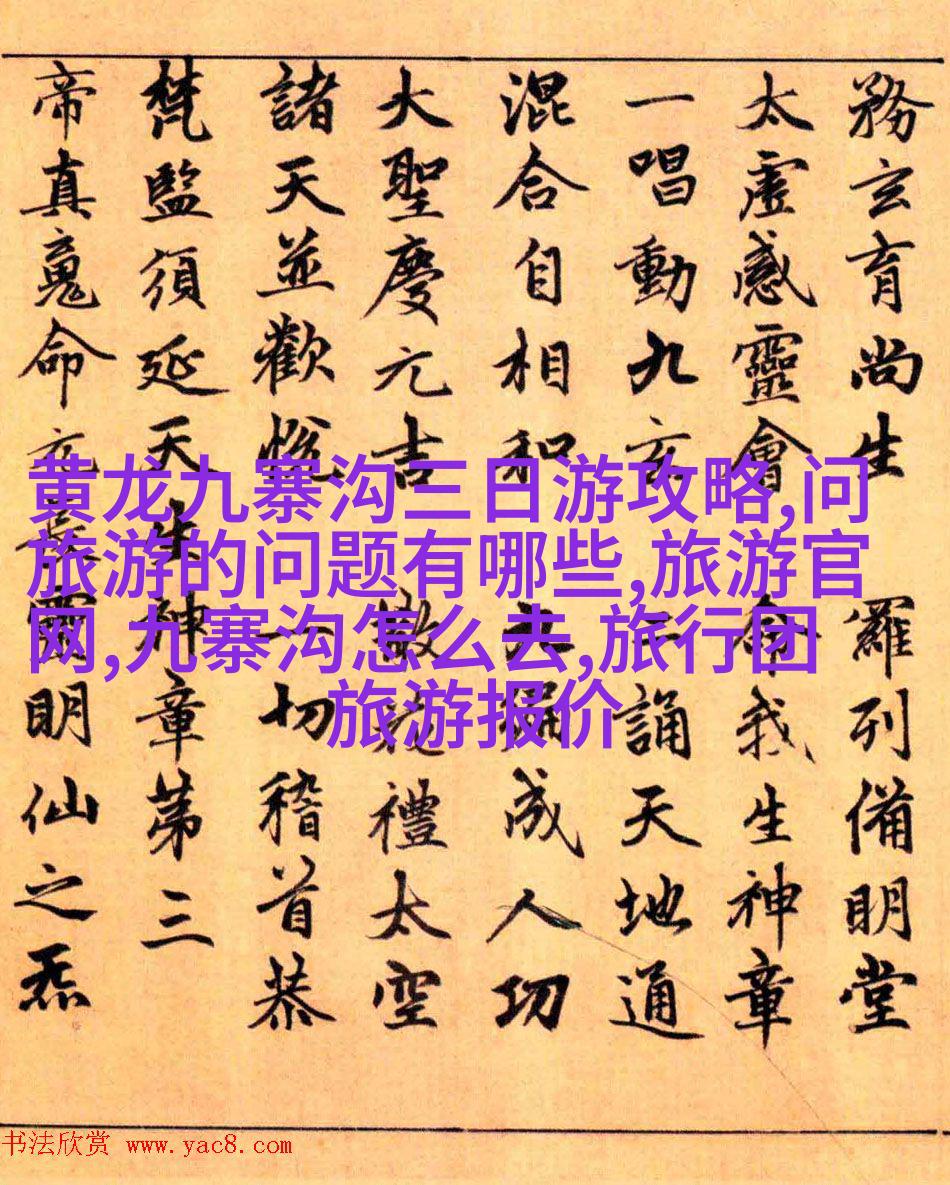 務玄育尚生 羅列備明堂
太虛感靈會 命我生神章
一唱動九玄 二誦天地通
混合自相和 九遍成人功
大聖慶元吉 散花禮太空
諸天並歡悅 一切稽首恭
梵監須延天生神章第三
帝真命元長靈明仙之炁
黄龙九寨沟三日游攻略,问
旅游的问题有哪些,旅游官
网,九寨沟怎么去,旅行团
旅游报价
书法欣赏 www.yac8.com